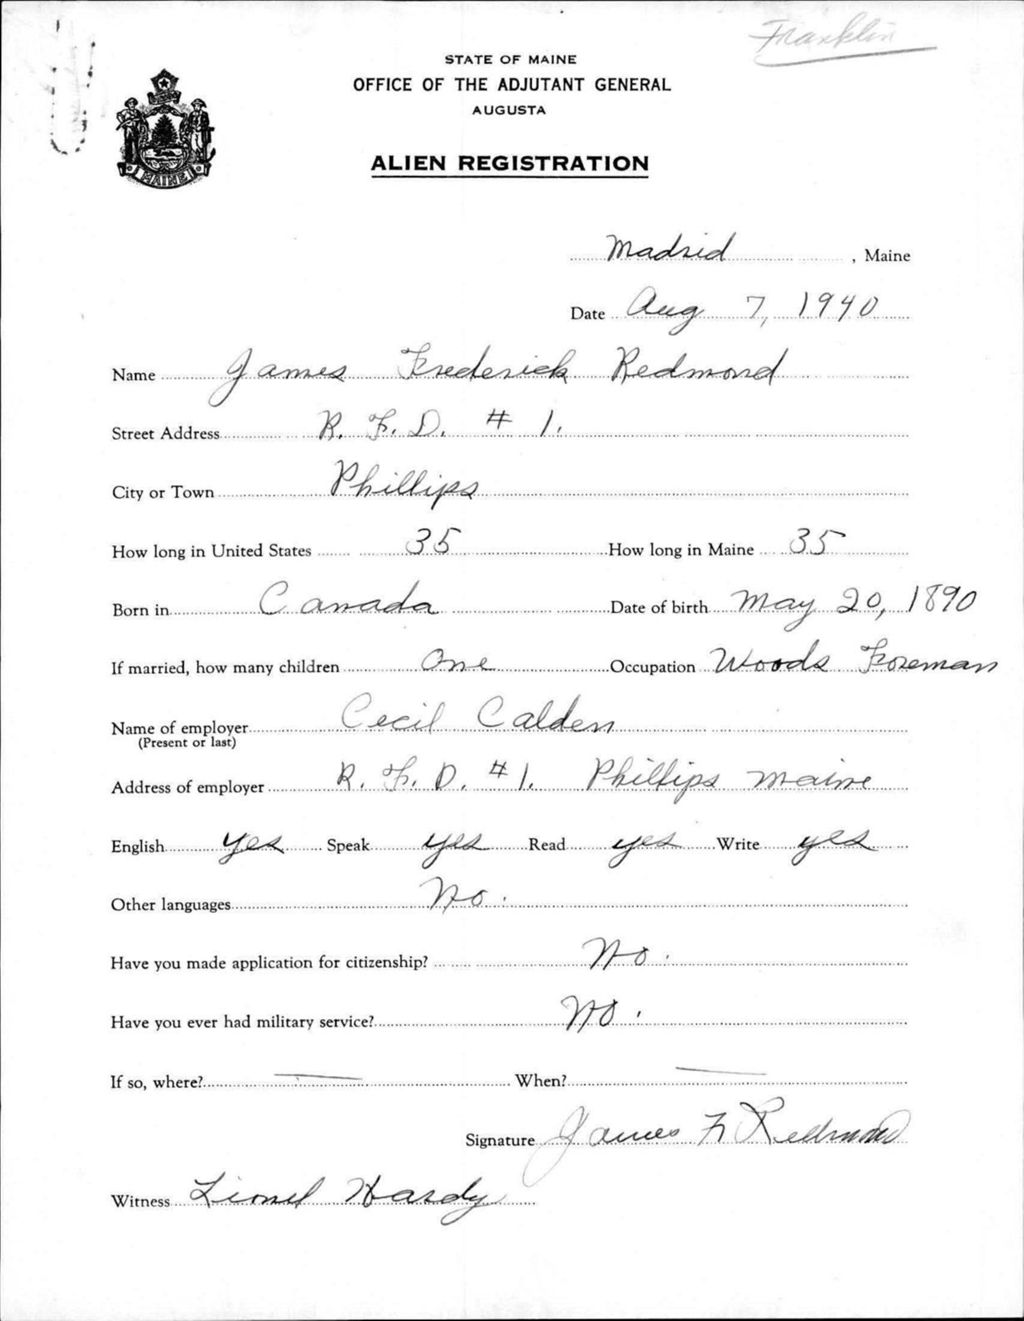 Franklin
STATE OF MAINE
OFFICE OF THE ADJUTANT GENERAL
AUGUSTA
MAINE
ALIEN REGISTRATION
Madrid, Maine
Date Aug 7, 1940
Name James Frederick Redmond
Street Address R. F. D. # 1.
City or Town Phillips
How long in United States 35 How long in Maine 35
Born in Canada Date of birth May 20, 1890
If married, how many children One Occupation Woods Foreman
Name of employer Cecil Calden
(Present or last)
Address of employer R. F. D. # 1. Phillips Maine
English yes Speak yes Read yes Write yes
Other languages No.
Have you made application for citizenship? No.
Have you ever had military service? No.
If so, where? — When? —
Signature James F Redmond
Witness Lionel Hardy